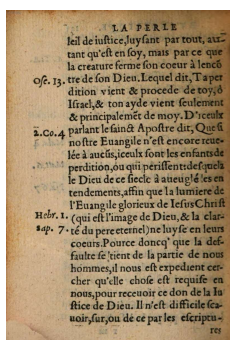 LA PERLE
leil de iustice, luysant par tout, au-
tant qu'est en soy, mais par ce que
la creature ferme son coeur à lencõ
Ose. 13. tre de son Dieu. Lequel dit, Ta per
dition vient & procede de toy, ô
Israel, & ton ayde vient seulement
& principalemẽt de moy. D'iceulx
2.Co.4 parlant le sainct Apostre dit, Que si
nostre Euangile n'est encore reue-
lée à aucũs, iceulx sont les enfants de
perdition, ou qui perissent: desquelz
le Dieu de ce siecle à aueuglé les en
tendements, affin que la lumiere de
l'Euangile glorieux de Iesus Christ
Hebr. 1. (qui est l'image de Dieu, & la clar-
Sap. 7. té du pere eternel) ne luyse en leurs
coeurs. Pource doncq' que la def-
faulte se tient de la partie de nous
hommes, il nous est expedient cer-
cher qu'elle chose est requise en
nous, pour receuoir ce don de la Iu
stice de Dieu. Il n'est difficile sca-
uoir, sur, ou de ce par les escriptu-
res